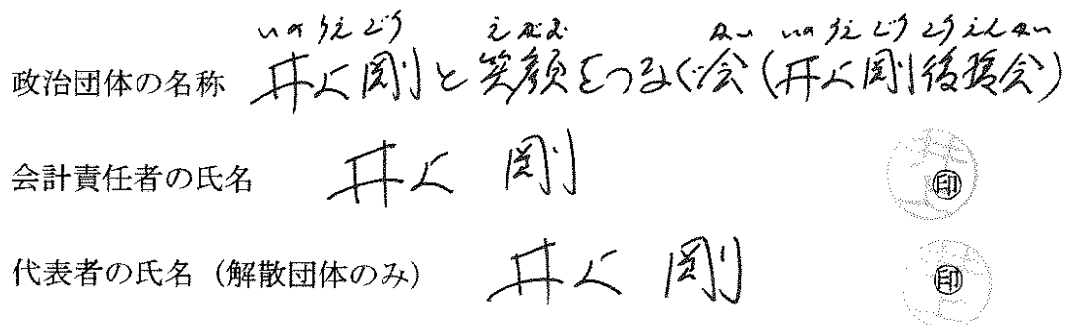 いのうえごう えがお かい いのうえごうこうえんかい
政治団体の名称 井上剛と笑顔をつなぐ会(井上剛後援会)
会計責任者の氏名 井上 剛 印
代表者の氏名(解散団体のみ) 井上 剛 印